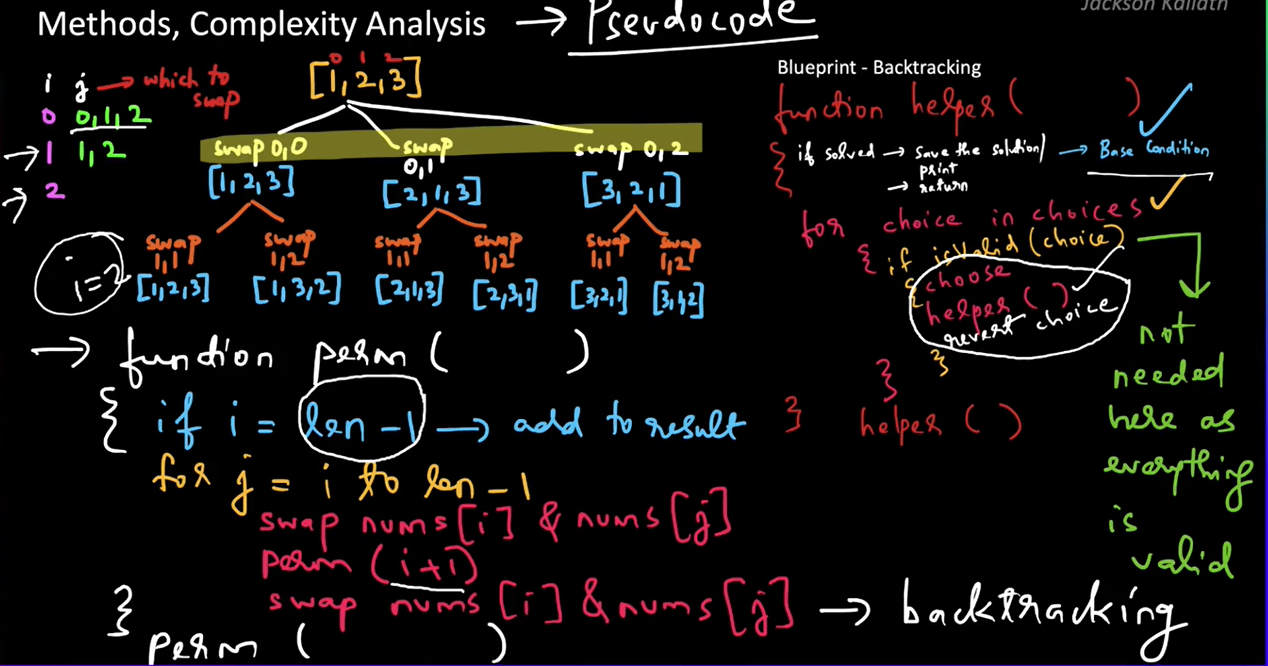 Jackson Kailath
Methods, Complexity Analysis → Pseudocode
i j → which to swap
0 0,1,2
→ 1 1,2
→ 2
0 1 2
[1,2,3]
swap 0,0 swap 0,1 swap 0,2
[1,2,3] [2,1,3] [3,2,1]
swap 1,1 swap 1,2 swap 1,1 swap 1,2 swap 1,1 swap 1,2
i=2 [1,2,3] [1,3,2] [2,1,3] [2,3,1] [3,2,1] [3,1,2]
→ function perm ( )
{ if i = len-1 → add to result
for j = i to len-1
swap nums[i] & nums[j]
perm (i+1)
swap nums[i] & nums[j] → backtracking
}
perm ( )
Blueprint - Backtracking
function helper( )
{ if solved → save the solution/ → Base Condition
print
→ return
for choice in choices
{ if isValid (choice)
{ choose
helper( )
revert choice
}
}
} helper ( )
not
needed
here as
everything
is
valid